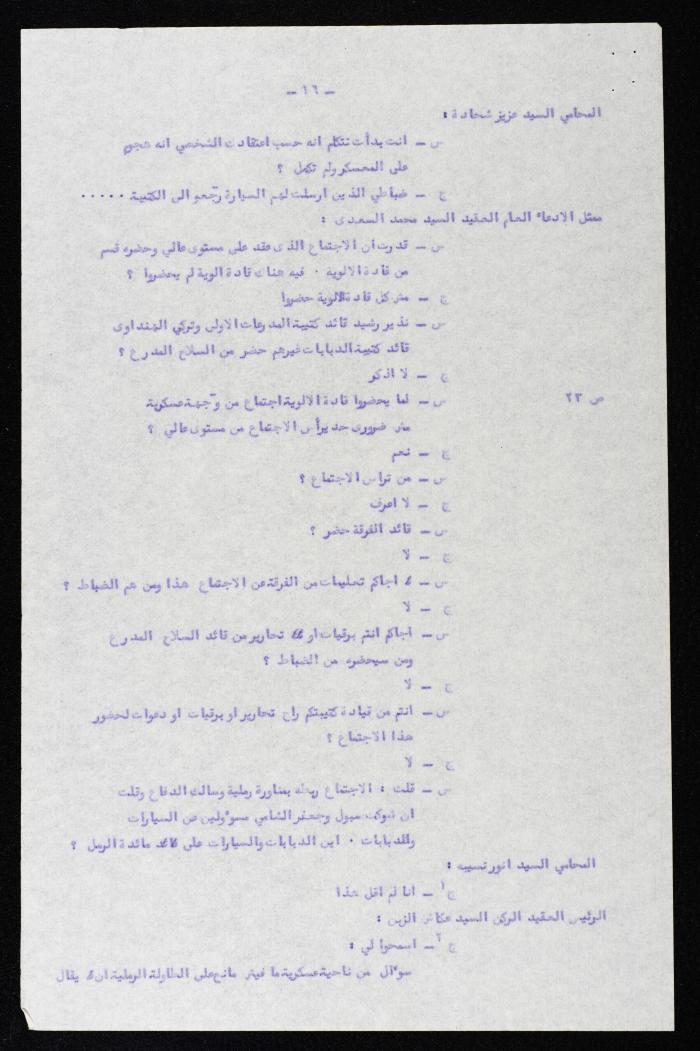 ـ ١٦ ـ
المحامي السيد عزيز شحادة :
س ـ انت بدأت تتكلم انه حسب اعتقادك الشخصي انه هجم
على المعسكر ولم تكمل ؟
ج ـ ضباطي الذين ارسلت لهم السيارة رجعو الى الكتيبة . . . . .
ممثل الادعاء العام العقيد السيد محمد السعدى :
س ـ قدرت ان الاجتماع الذى عقد على مستوى عالي وحضره قسم
من قادة الالوية . فيه هناك قادة الوية لم يحضروا ؟
ج ـ مش كل قادة الالوية حضروا
س ـ نذير رشيد قائد كتيبة المدرعات الاولى وتركي الهنداوى
قائد كتيبة الدبابات غيرهم حضر من السلاح المدرع ؟
ج ـ لا اذكر
ص ٢٣
س ـ لما يحضروا قادة الالوية اجتماع من وجهة عسكرية
مش ضرورى حد يرأس الاجتماع من مستوى عالي ؟
ج ـ نعم
س ـ من تراس الاجتماع ؟
ج ـ لا اعرف
س ـ قائد الفرقة حضر ؟
ج ـ لا
س ـ اجاكم تعليمات من الفرقة عن الاجتماع هذا ومن هم الضباط ؟
ج ـ لا
س ـ اجاكم انتم برقيات او تحارير من قائد السلاح المدرع
ومن سيحضره من الضباط ؟
ج ـ لا
س ـ انتم من قيادة كتيبتكم راح تحارير او برقيات او دعوات لحضور
هذا الاجتماع ؟
ج ـ لا
س ـ قلت : الاجتماع ربطه بمناورة رملية وسالك الدفاع وقلت
ان شوكت سبول وجعفر الشامي مسوٴولين عن السيارات
والدبابات . اين الدبابات والسيارات على مائدة الرمل ؟
المحامي السيد انور نسيبه :
ج١ ـ انا لم اقل هذا
الرئيس العقيد الركن السيد عكاش الزبن :
ج٢ ـ اسمحوا لي :
سوٴال من ناحية عسكرية ما فيش مانع على الطاولة الرملية ان يقال